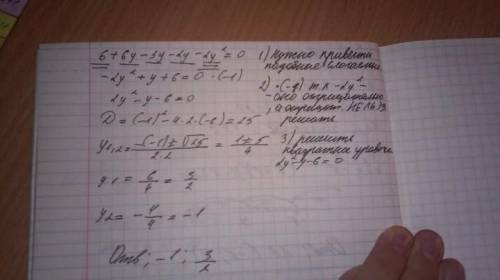 6 + 6y - 3y - 2y - 2y² = 0
-2y² + y + 6 = 0 ·(-1)
2y² - y - 6 = 0
D = (-1)² - 4·2·(-6) = 25
y1,2 = -(-1) ± √25 / 2·2 = 1 ± 5 / 4
y1 = 6/4 = 3/2
y2 = -4/4 = -1
Отв: -1; 3/2
1) Нужно привести
подобные слагаемые
2) ·(-1) т.к -2y² -
- оно отрицательно
, а отрицат. НЕЛЬЗЯ
решать
3) решить
квадратное уравн.
2y² - y - 6 = 0